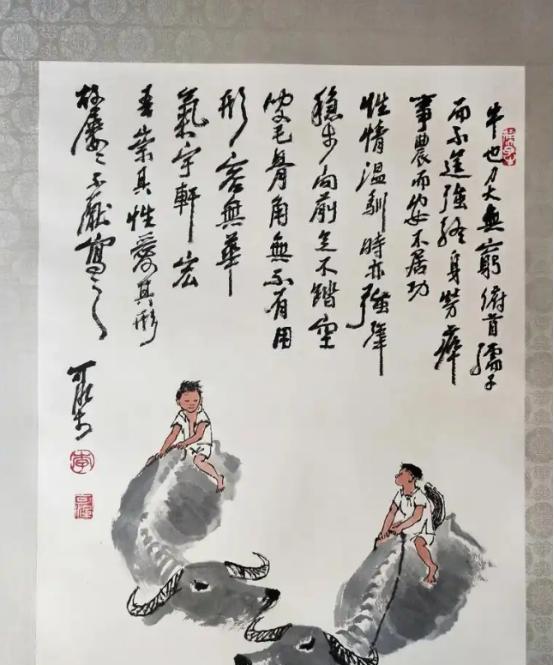 牛也力大無窮俯首孺子
而不逞強終身勞瘁
事農而安不居功
性情温馴時亦強犟
穩步向前足不踏空
皮毛骨角無不有用
形容無華
氣宇軒宏
吾崇其性愛其形
故屢々不厭寫之
可染
李